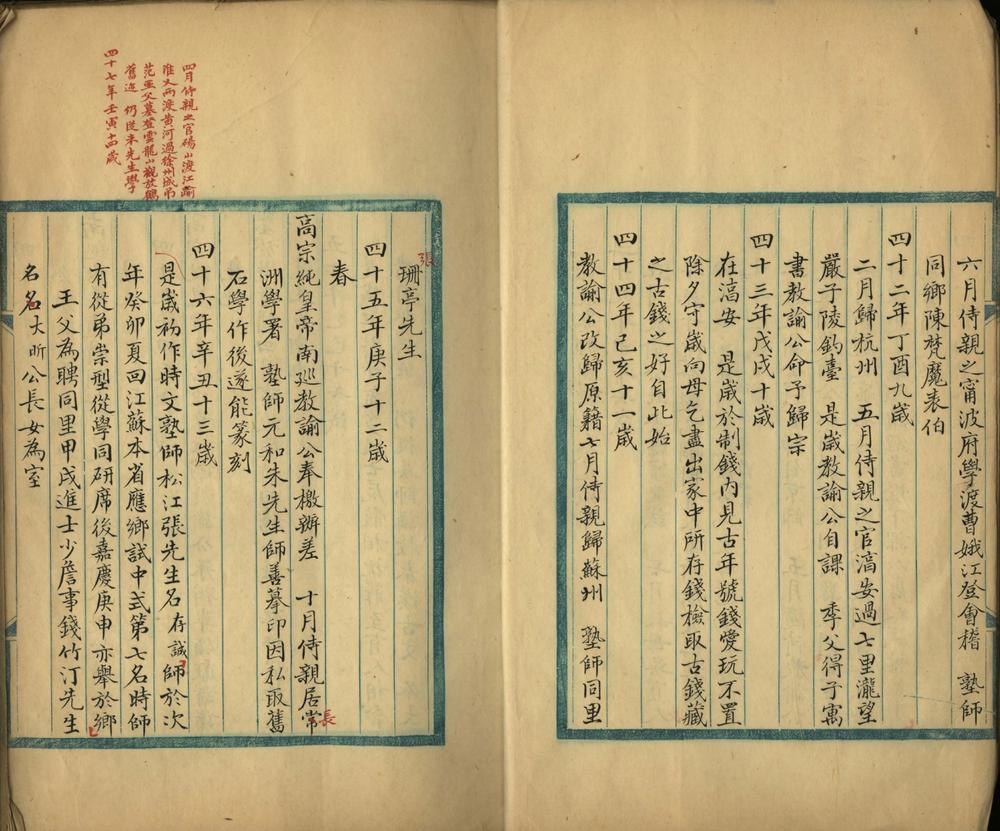 六月侍親之甯波府學渡曹娥江登會稽　塾師
同鄉陳梵魔表伯
四十二年丁酉九歲
二月歸杭州　五月侍親之官淯安過七里瀧望
嚴子陵釣臺　是歲教諭公自課　季父得子寓
書教諭公命予歸宗
四十三年戊戌十歲
在淯安　是歲於制錢內見古年號錢愛玩不置
除夕守歲向母乞盡出家中所存錢檢取古錢藏
之古錢之好自此始
四十四年己亥十一歲
教諭公改歸原籍七月侍親歸蘇州　塾師同里
張
珊亭先生
四十五年庚子十二歲
春
高宗純皇帝南巡教諭公奉檄辦差　十月侍親居常
長
洲學署　塾師元和朱先生師善摹印因私取舊
石學作後遂能篆刻
四十六年辛丑十三歲
是歲初作時文塾師松江張先生名存誠師於次
年癸卯夏回江蘇本省應鄉試中式第七名時師
有從弟崇型從學同研席後嘉慶庚申亦舉於鄉
王父為聘同里甲戌進士少詹事錢竹汀先生
名大昕公長女為室
四月侍親之官碭山渡江瀹
淮又兩渡黃河過徐州城弔
范亞父墓登雲龍山觀放鶴
舊迹　仍從朱先生學
四十七年壬寅十四歲